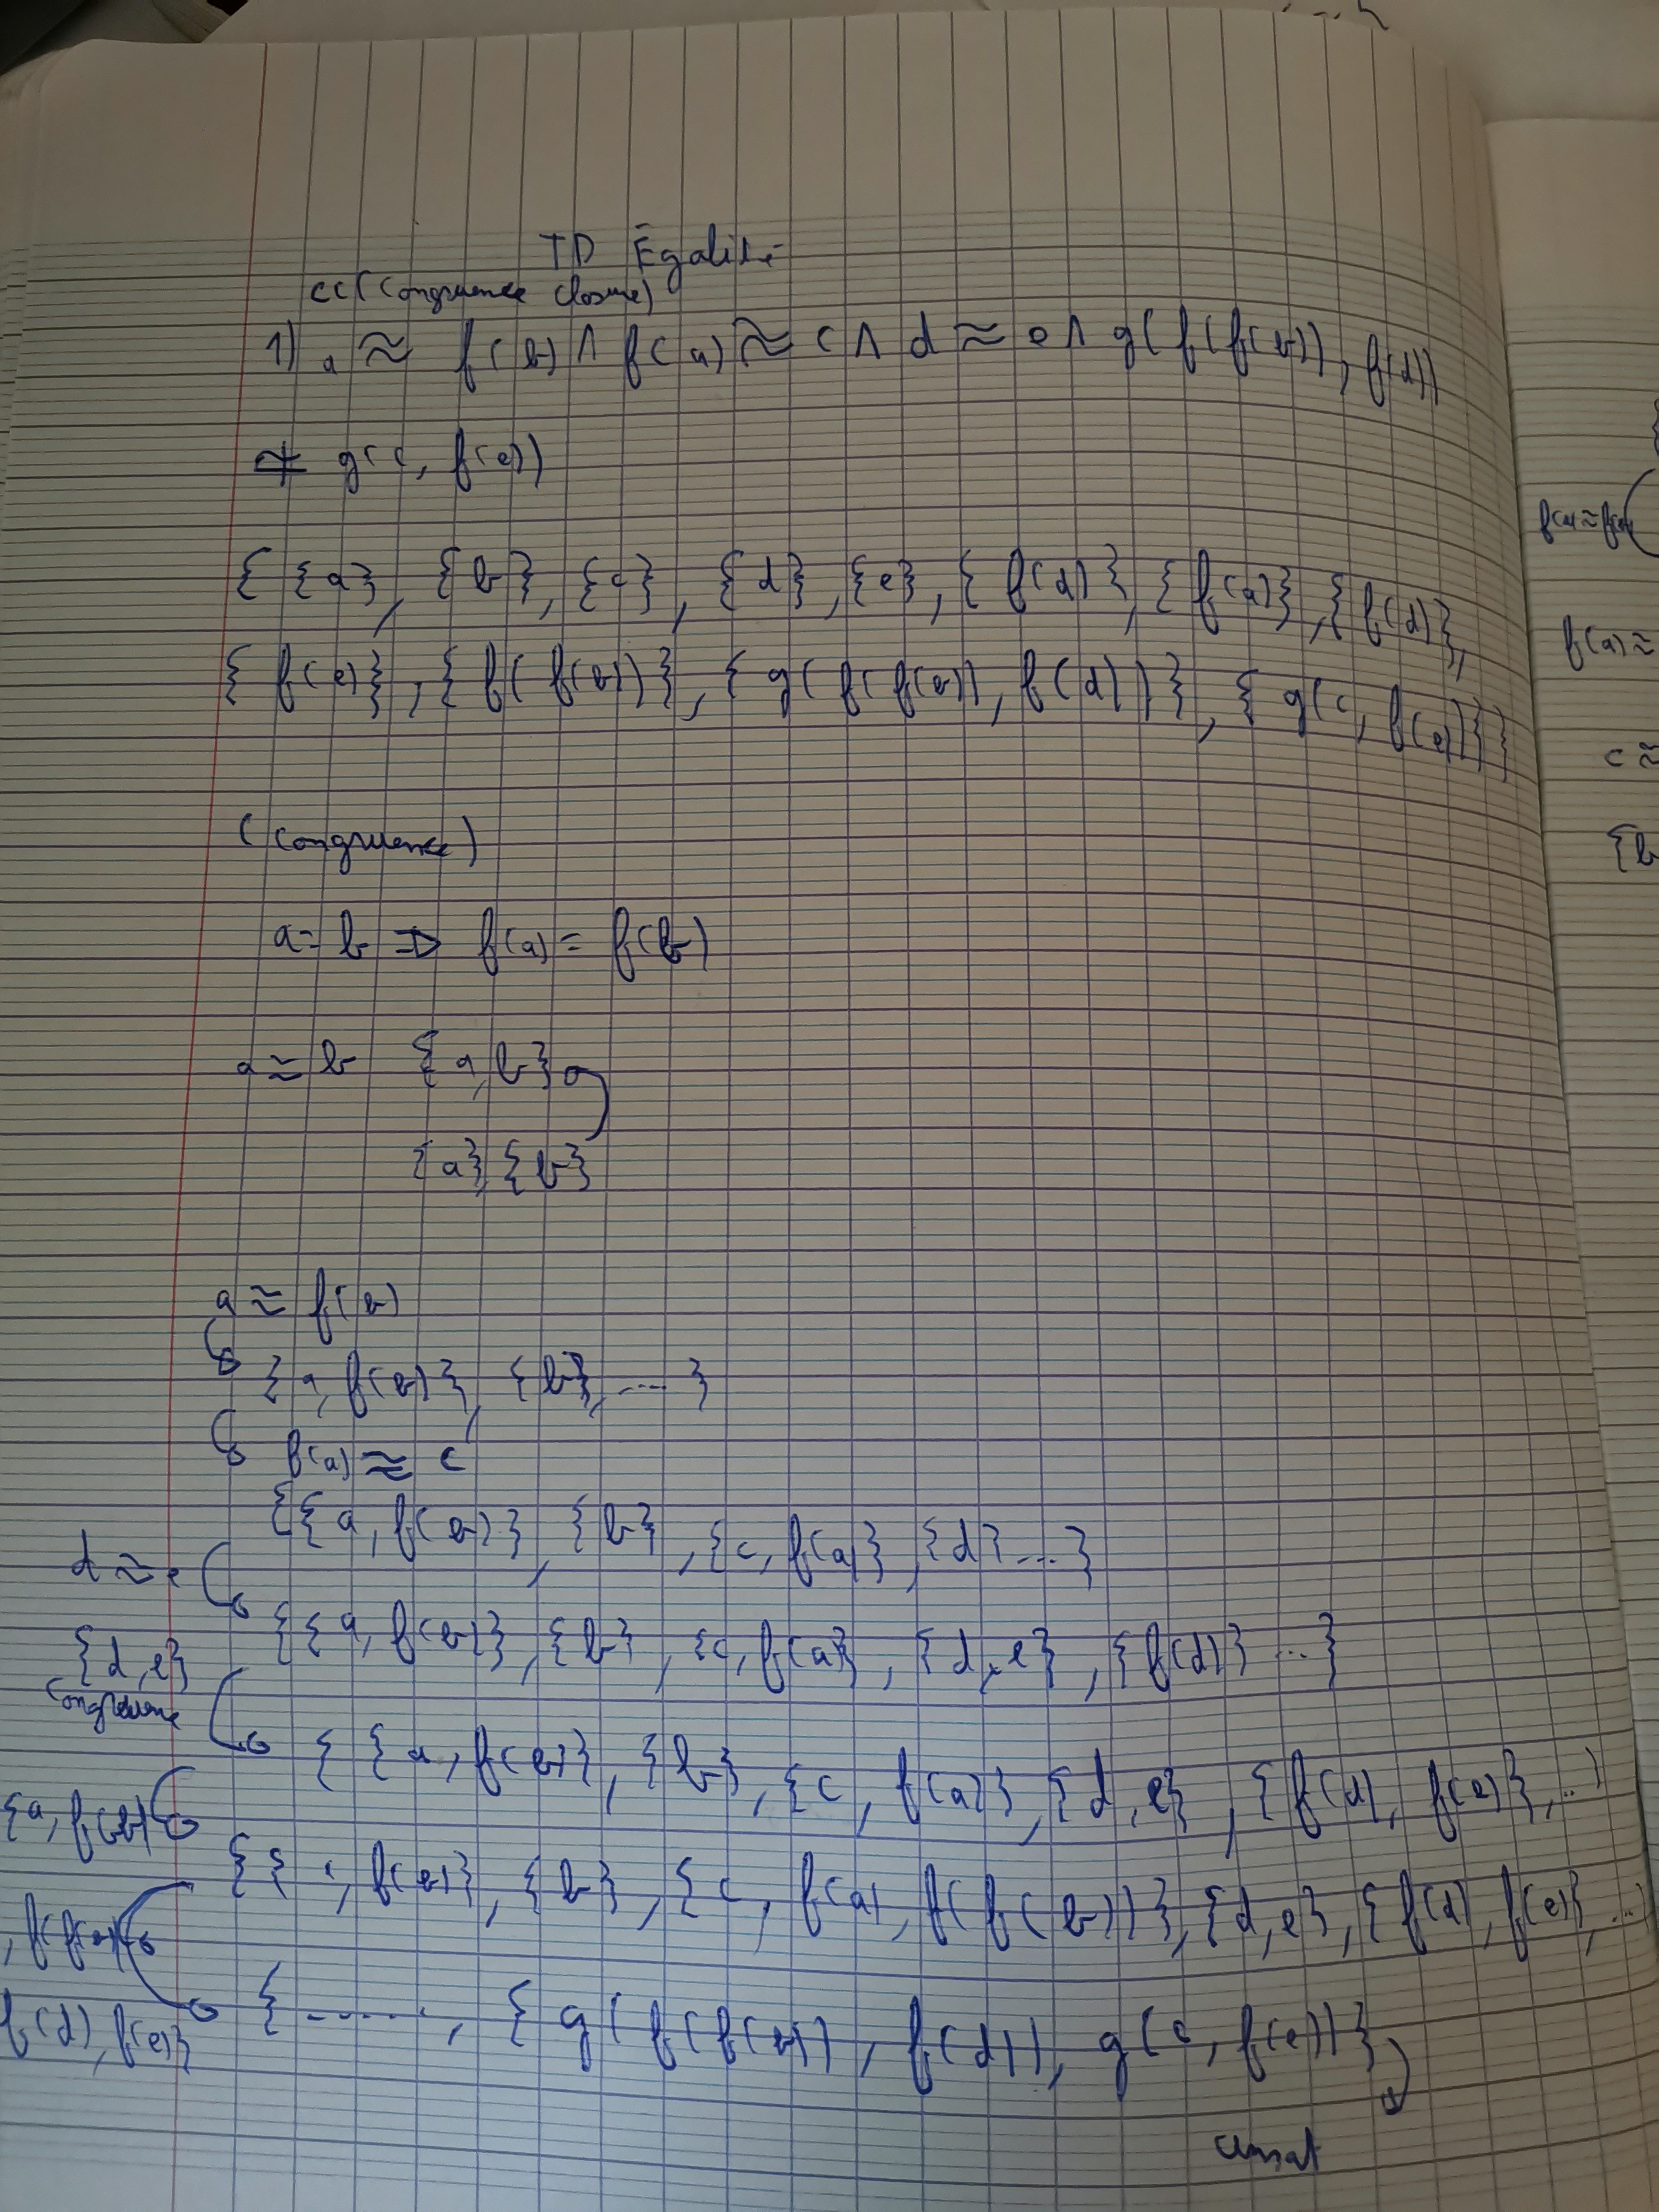 TD Égalité
CC (Congruence Closure)
1) a ≈ f(b) ∧ f(a) ≈ c ∧ d ≈ e ∧ g(f(f(b)), f(d))
≠ g(c, f(e))
{ {a}, {b}, {c}, {d}, {e}, {f(d)}, {f(a)}, {f(d)},
{f(e)}, {f(f(b))}, {g(f(f(b)), f(d))}, {g(c, f(e))}}
(Congruence)
a = b ⇒ f(a) = f(b)
a ≈ b {a, b}
{a} {b}
a ≈ f(b)
{a, f(b)}, {b}, ... }
f(a) ≈ c
{{a, f(b)}, {b}, {c, f(a)}, {d} ... }
d ≈ e
{{a, f(b)}, {b}, {c, f(a)}, {d, e}, {f(d)} ... }
{d, e}
Congruence
{ {a, f(b)}, {b}, {c, f(a)}, {d, e}, {f(d), f(e)}, ..}
{a, f(b)
{{ , f(b)}, {b}, {c, f(a), f(f(b))}, {d, e}, {f(d), f(e)}, ...}
f(d), f(e)}
{ ......, {g(f(f(b)), f(d)), g(c, f(e))}
unsat
f(a) ≈
c ≈
{b